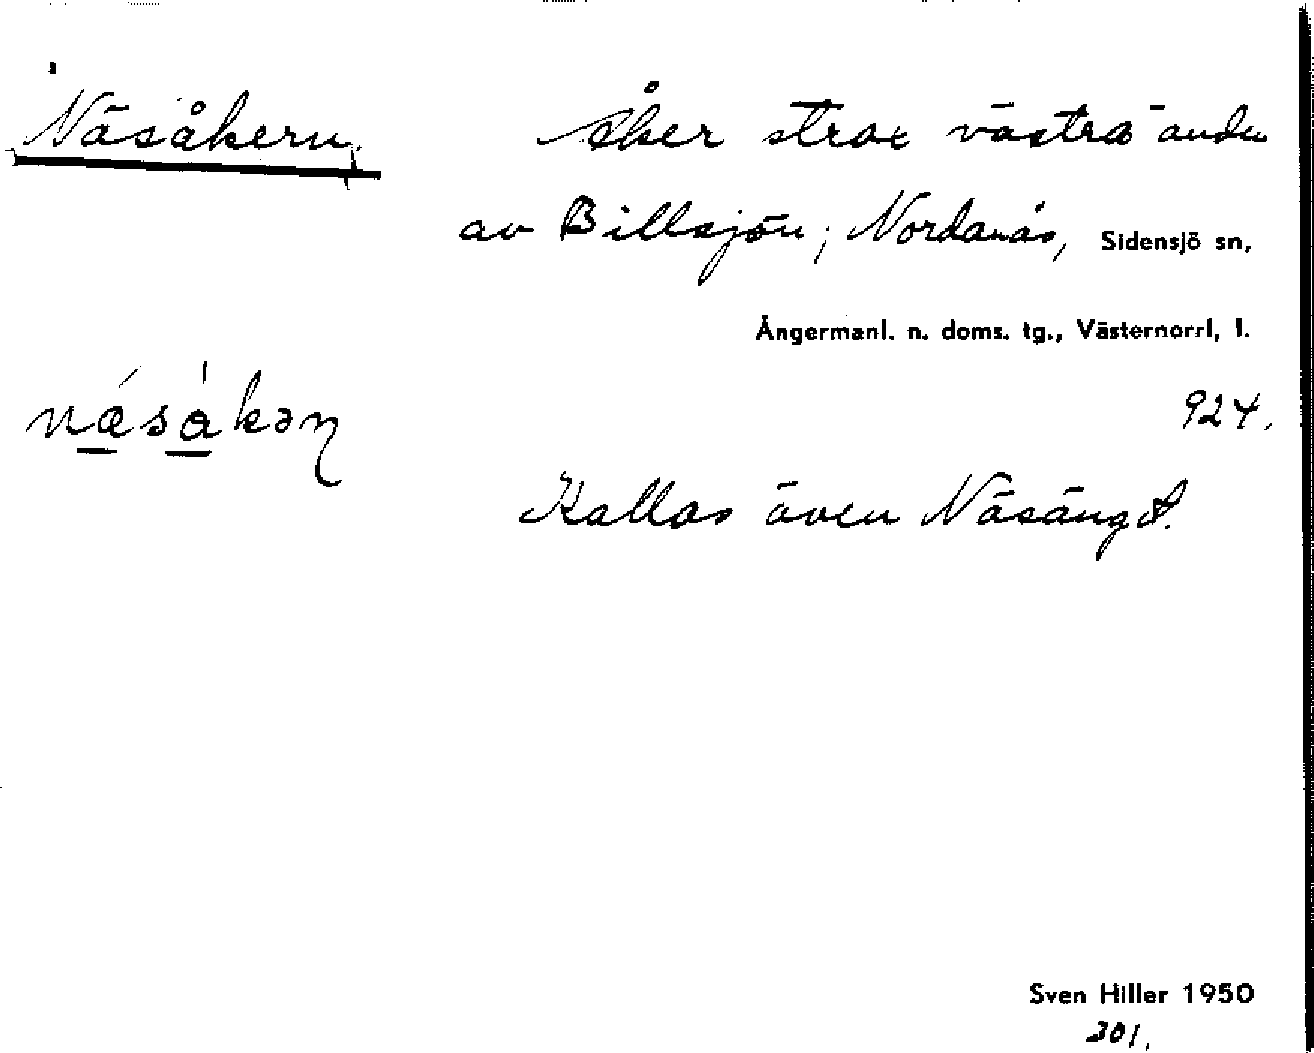 Näsåkern.
Åker strax västra ändan
av Billsjön; Nordanås, Sidensjö sn,
Ångermanl. n. doms. tg., Västernorrl. l.
næ´så`kəɳ
924.
Kallas även Näsänget.
Sven Hiller 1950
301.